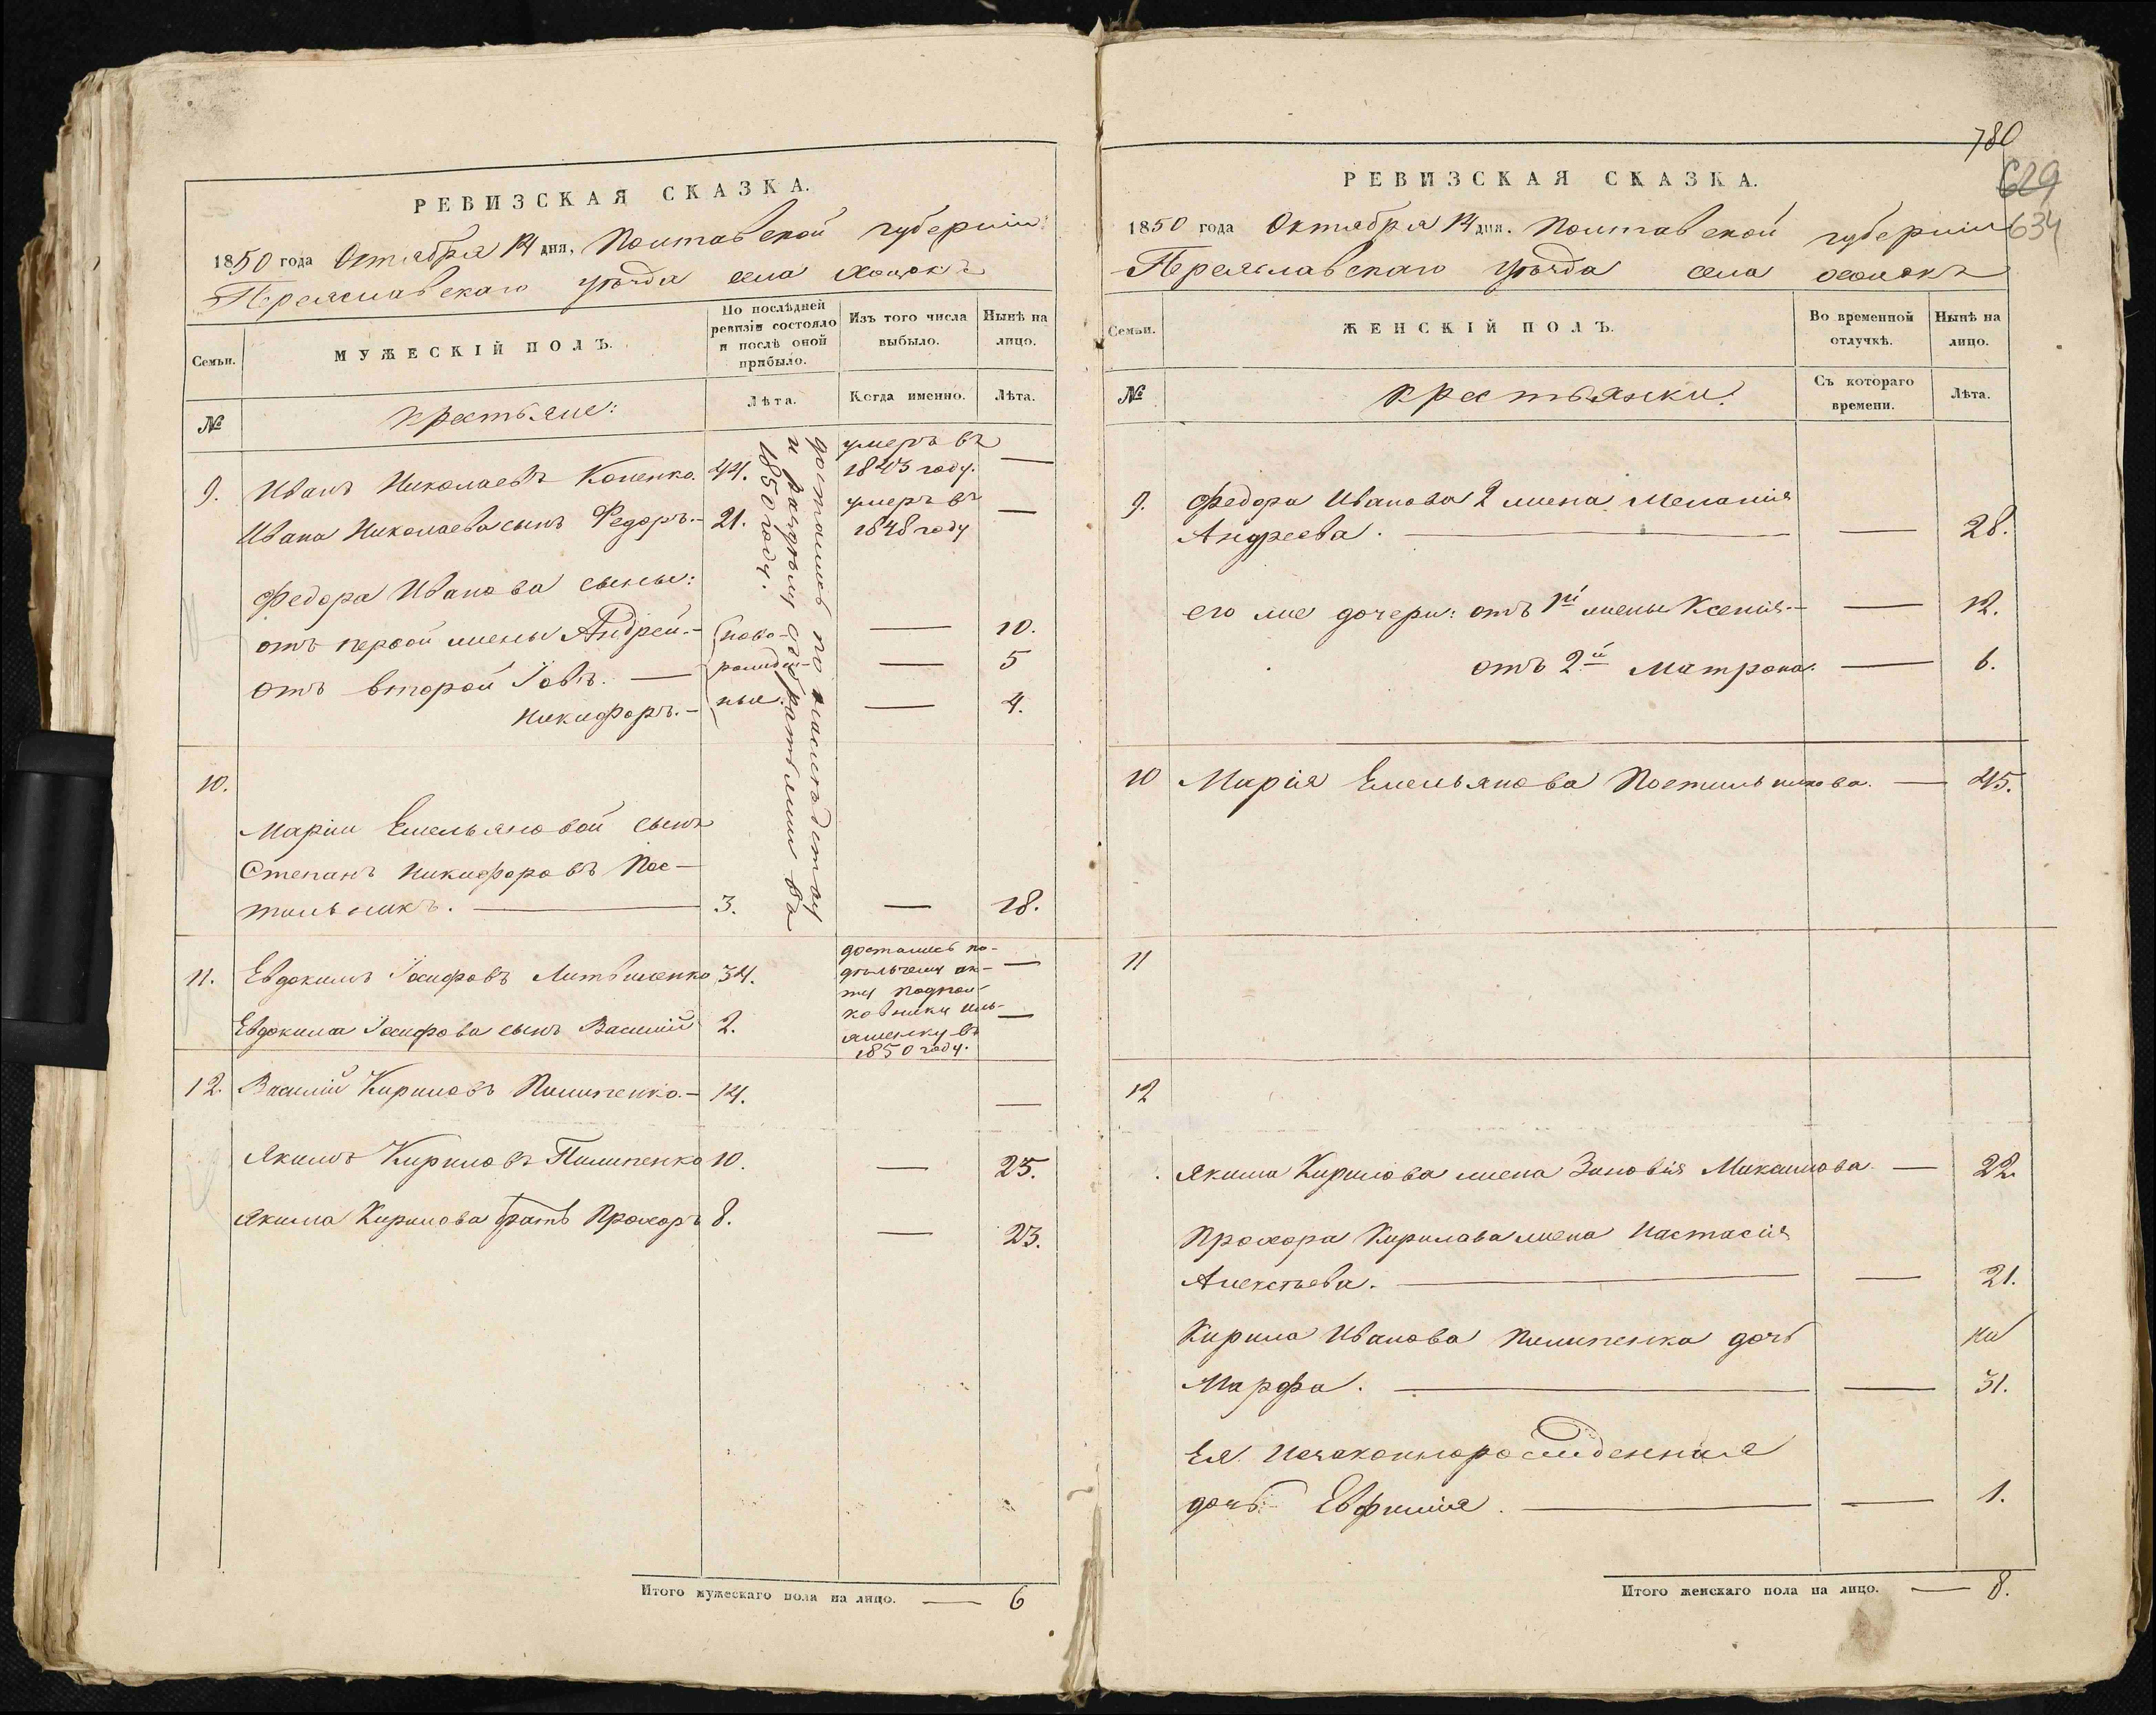 РЕВИЗСКАЯ СКАЗКА.
1850 года Октября 14 дня, Полтавской губерніи
Переяславскаго уѣзда села Хоцокъ
Семьи.
МУЖЕСКІЙ ПОЛЪ.
По послѣдней
ревизіи состояло
и послѣ оной
прибыло.
Изъ того числа
выбыло.
Нынѣ на
лицо.
№
Крестьяне:
Лѣта.
Когда именно.
Лѣта.
достались по наслѣдству
и раздѣлу съ братьями въ
1850 году.
9. Иванъ Николаевъ Коненко. 44. умеръ въ
1843 году. —
Ивана Николаева сынъ Федоръ. – 21. умеръ въ
1848 году —
Федора Иванова сыны:
отъ первой жены Андрей. – ново- — 10.
отъ второй Іовъ. — рожден- — 5
Никифоръ. – ные. — 4.
10.
Маріи Емельяновой сынъ
Степанъ Никифоровъ Пос-
тильникъ. — 3. — 18.
11. Евдокимъ Іосифовъ Литвиненко 34. —
Евдокима Іосифова сынъ Василій 2. —
достались по-
дѣльчему ак-
ту подпол-
ковнику Иль-
яшенку въ
1850 году.
12. Василій Кириловъ Пилипенко. – 14. —
Якимъ Кириловъ Пилипенко 10. — 25.
Якима Кирилова братъ Прохоръ 8. — 23.
Итого мужескаго пола на лицо. — 6
780
629
634
РЕВИЗСКАЯ СКАЗКА.
1850 года Октября 14 дня. Полтавской губерніи
Переяславскаго уѣзда села Хоцокъ
Семьи.
ЖЕНСКІЙ ПОЛЪ.
Во временной
отлучкѣ.
Нынѣ на
лицо.
№
Крестьянки:
Съ котораго
времени.
Лѣта.
9. Федора Иванова 2 жена Меланія
Андреева. — — 28.
его же дочери: отъ 1й жены Ксенія. – — 12.
отъ 2й Матрона. — 6.
10 Марія Емельянова Постильникова. — 45.
11
12
Якима Кирилова жена Зиновія Максимова. — 22
Прохора Кирилова жена Настасія
Алексѣева. — — 21.
Кирила Иванова Пилипенка дочь
Марфа. — — 31.
Ея незаконнорожденная
дочь Евфимія. — — 1.
Итого женскаго пола на лицо. — 8.